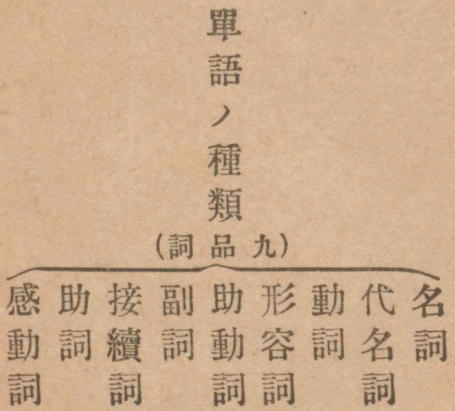 單語ノ種類
(九品詞)
名詞
代名詞
動詞
形容詞
助動詞
副詞
接續詞
助詞
感動詞